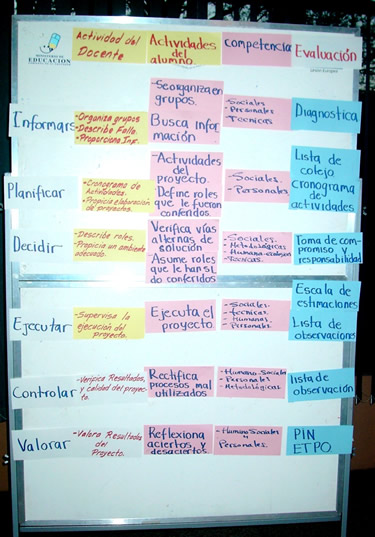 Actividad del
Docente
Actividades
del
alumno
competencia
Evaluación
MINISTERIO DE
EDUCACIÓN
Unión Europea
Informars
- Organiza grupos
- Describe Fallo.
- Proporciona Inf.
- Se organiza en
grupos.
Busca infor
mación
- Sociales
- Personales
- Tecnicas
Diagnostica
Planificar
- Cronograma de
Actividades.
- Propicia elaboración
de proyectos.
- Actividades
del
proyecto.
- Define roles
que le fueron
conferidos.
- Sociales.
- Personales
Lista de
colejo
cronograma
del
actividades
Decidir
- Describe roles.
- Propicia un ambiente
adecuado.
Verifica vías
alternas de
solución
- Asume roles
que le han si
do conferidos
- Sociales.
- Metodológicas
- Humana
- Tecnicas.
Toma de com-
promiso y
responsabilidad
Ejecutar
- Supervisa la
ejecución del
proyecto.
Ejecuta el
proyecto.
- Sociales.
- Tecnicas.
- Humanas
- Personales
Escala de
estimaciones
Lista de
observaciones
Controlar
- Verifica Resultados,
y calidad del proyec
to.
Rectifica
procesos mal
utilizados
- Humano Sociales
- Personales
- Metodológicas
lista de
observación
Valorar
- Valora Resultados
del
Proyecto.
Reflexiona
aciertos, y
desaciertos
- Humano Sociales
y
Personales.
PIN
ETPO